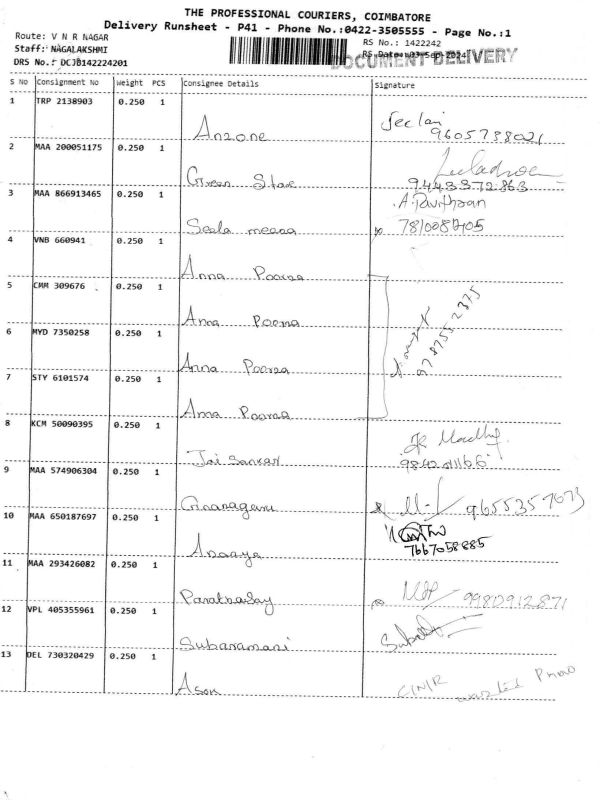 THE PROFESSIONAL COURIERS, COIMBATORE
Delivery Runsheet - P41 - Phone No.:0422-3505555 - Page No.:1
Route: V N R NAGAR
RS No.: 1422242
Staff: NAGALAKSHMI
RS Date: 03-Sep-2024
DOCUMENT DELIVERY
DRS No.: DCJB142224201
S No Consignment No Weight PCS Consignee Details Signature
1 TRP 2138903 0.250 1
Anzone
9605738021
2 MAA 200051175 0.250 1
Green Star
9443372863
3 MAA 866913465 0.250 1
A. Pavithran
Seela meena
7810087405
4 VNB 660941 0.250 1
Anna Poorna
5 CMM 309676 0.250 1
Anna Poorna
9787552375
6 MYD 7350258 0.250 1
Anna Poorna
7 STY 6101574 0.250 1
Anna Poorna
8 KCM 50090395 0.250 1
Jai Sankar
9 MAA 574906304 0.250 1
9655357673
10 MAA 650187697 0.250 1
7667058885
11 MAA 293426082 0.250 1
9980912871
12 VPL 405355961 0.250 1
Subaramani
13 DEL 730320429 0.250 1
Ason